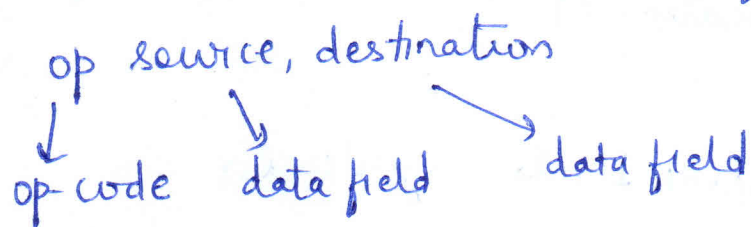 op source, destination
op-code data field data field